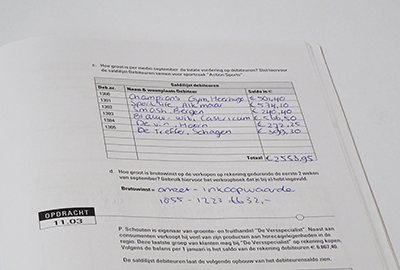 c. Hoe groot is per medio september de totale vordering op debiteuren? Stel hiervoor
de saldilijst Debiteuren samen voor sportzaak "Action Sports".
Saldilijst debiteuren
Deb.nr. Naam & woonplaats Debiteur Saldo in €
1300 Champions Gym, Heerhugo
1301 Sport Alkmaar € 574,10
Smash, Bergen € 240,40
1303 Blauw-Wit, Castricum € 566,50
1304 De Win, Hoorn € 272,25
1305 De Treffer, Schagen
Totaal € 2558,95
d. Hoe groot is brutowinst op de verkopen op rekening gedurende de eerste 2 weken
van september? Gebruik hiervoor het verkoopboek dat je bij a) hebt ingevuld.
Brutowinst = omzet - inkoopwaarde
1855 - 1223 632,-
OPDRACHT
11.03
P. Schouten is eigenaar van groente- en fruithandel "De Versspecialist". Naast aan
consumenten verkoopt hij veel van zijn producten aan horecagelegenheden in de
regio. Deze laatste groep van klanten mag bij "De Versspecialist" op rekening kopen.
Volgens de balans per 1 januari is het saldo van de rekening debiteuren € 6.667,40.
De saldilijst debiteuren laat de volgende opbouw van het debiteurensaldo zien.